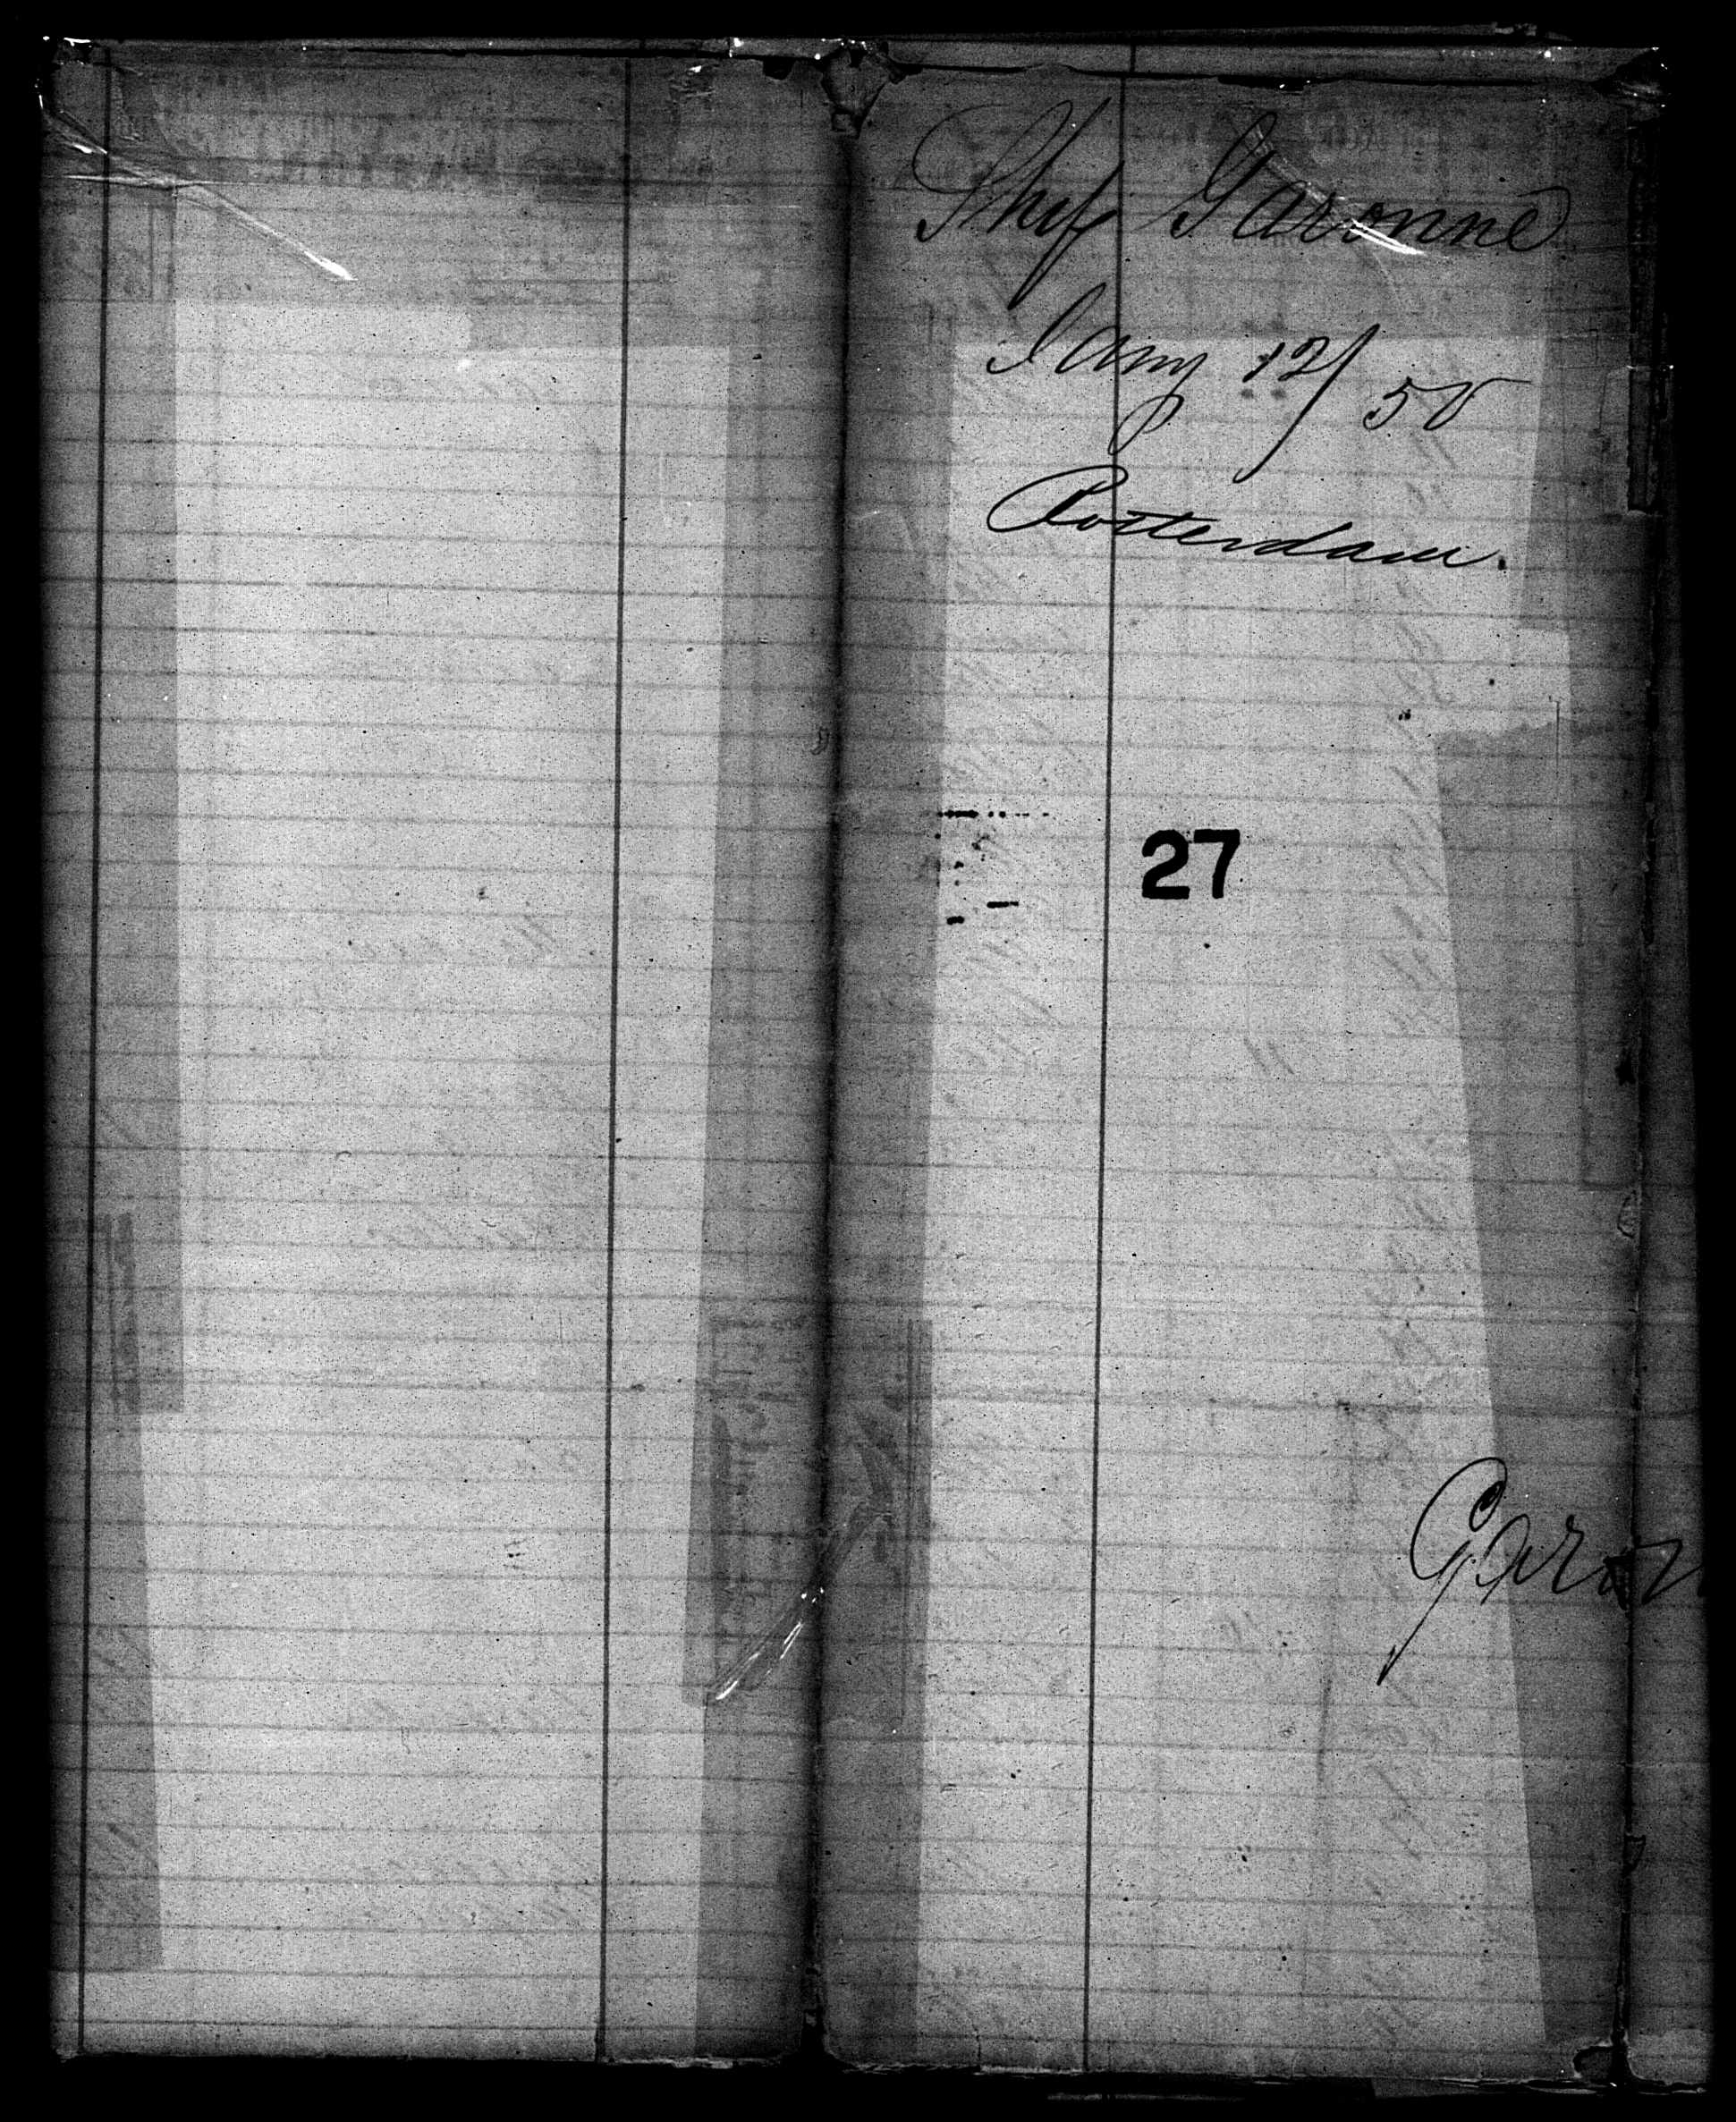 Ship Garonne
Jany 12/50
Rotterdam.
27
Garon